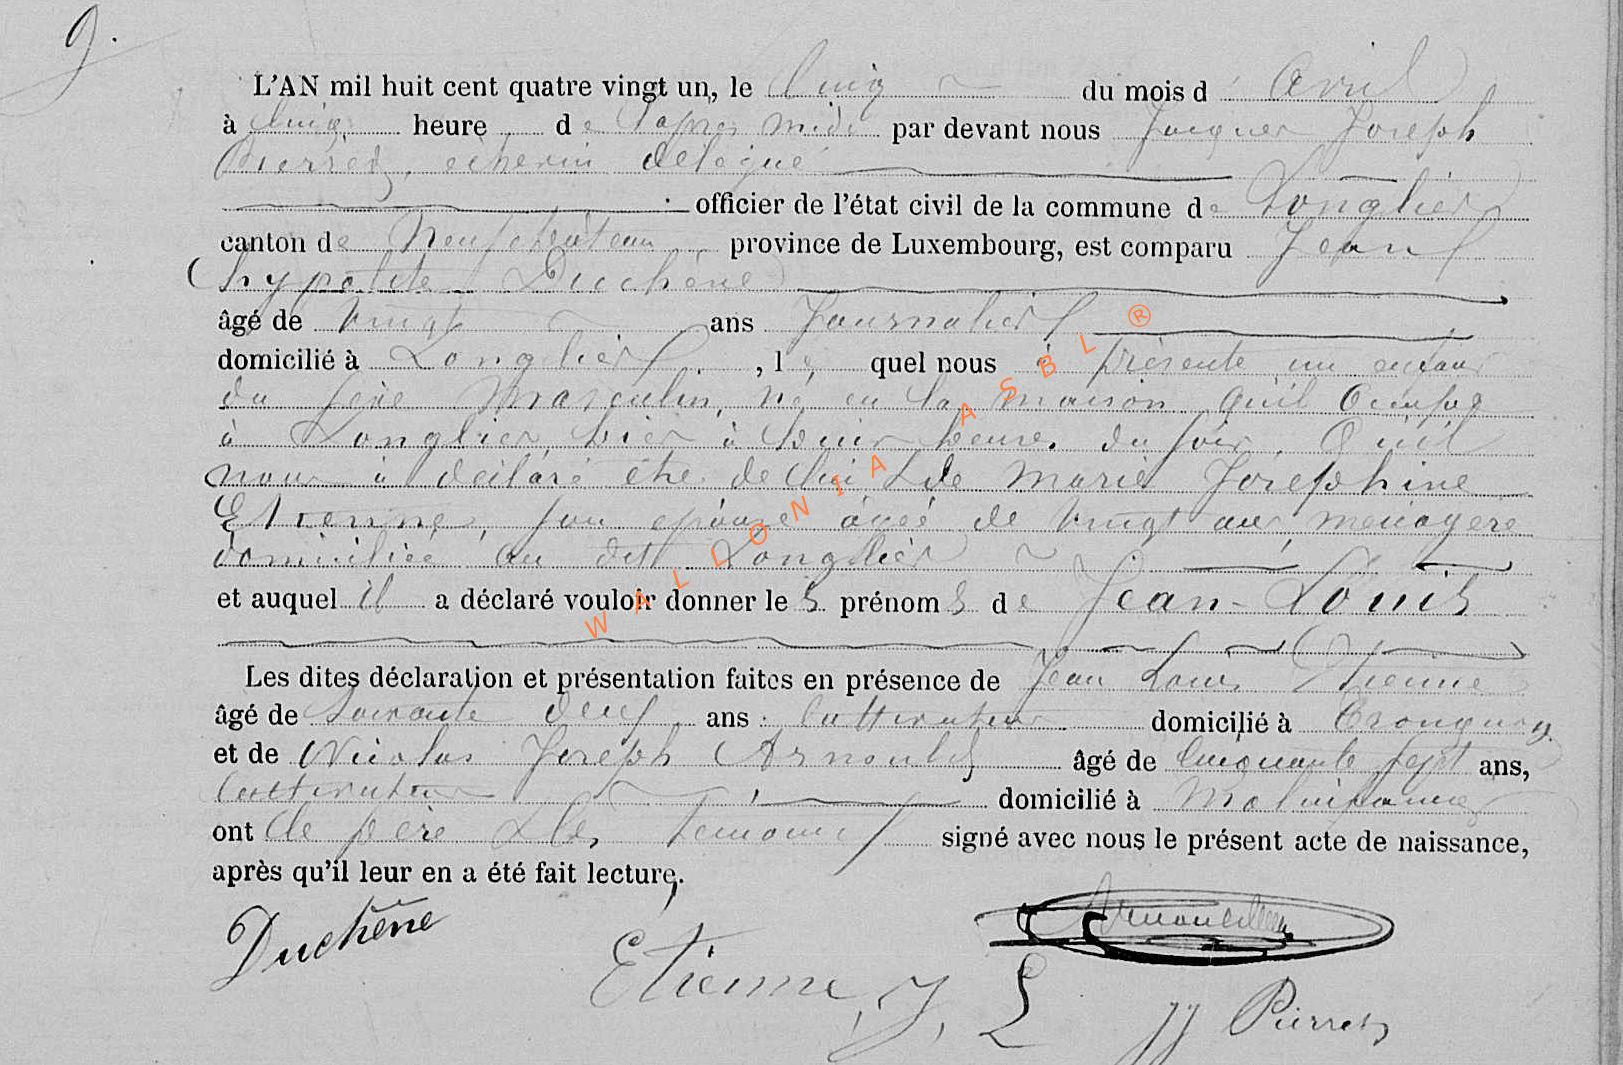 9.
L'AN mil huit cent quatre vingt un, le Cinq du mois d'Avril
à Cinq heure de l'après midi par devant nous Jacques Joseph
Pierret, echevin délégué
officier de l'état civil de la commune de Longlier
canton de Neufchateau province de Luxembourg, est comparu Jean
hypolite Duchêne
âgé de vingt ans Journalier
domicilié à Longlier, le quel nous à présenté un enfant
du sexe Masculin, né en la maison qu'il Occupe
à Longlier, hier à heure du soir, Qu'il
nous à déclaré être de lui & de Marie Josephine
Etienne, son épouse âgée de vingt ans, menagere
domiciliée au dit Longlier
et auquel il a déclaré vouloir donner les prénoms de Jean-Louis
Les dites déclaration et présentation faites en présence de Jean Louis Etienne
âgé de Soixante deux ans cultivateur domicilié à Tronquoy
et de Nicolas Joseph Arnould âgé de Cinquante sept ans,
Cultivateur domicilié à Molinfaing
ont le père & les temoins signé avec nous le présent acte de naissance,
après qu'il leur en a été fait lecture.
Duchêne
Etienne, J, L
JJ Pierret
WALLONIA ASBL ®